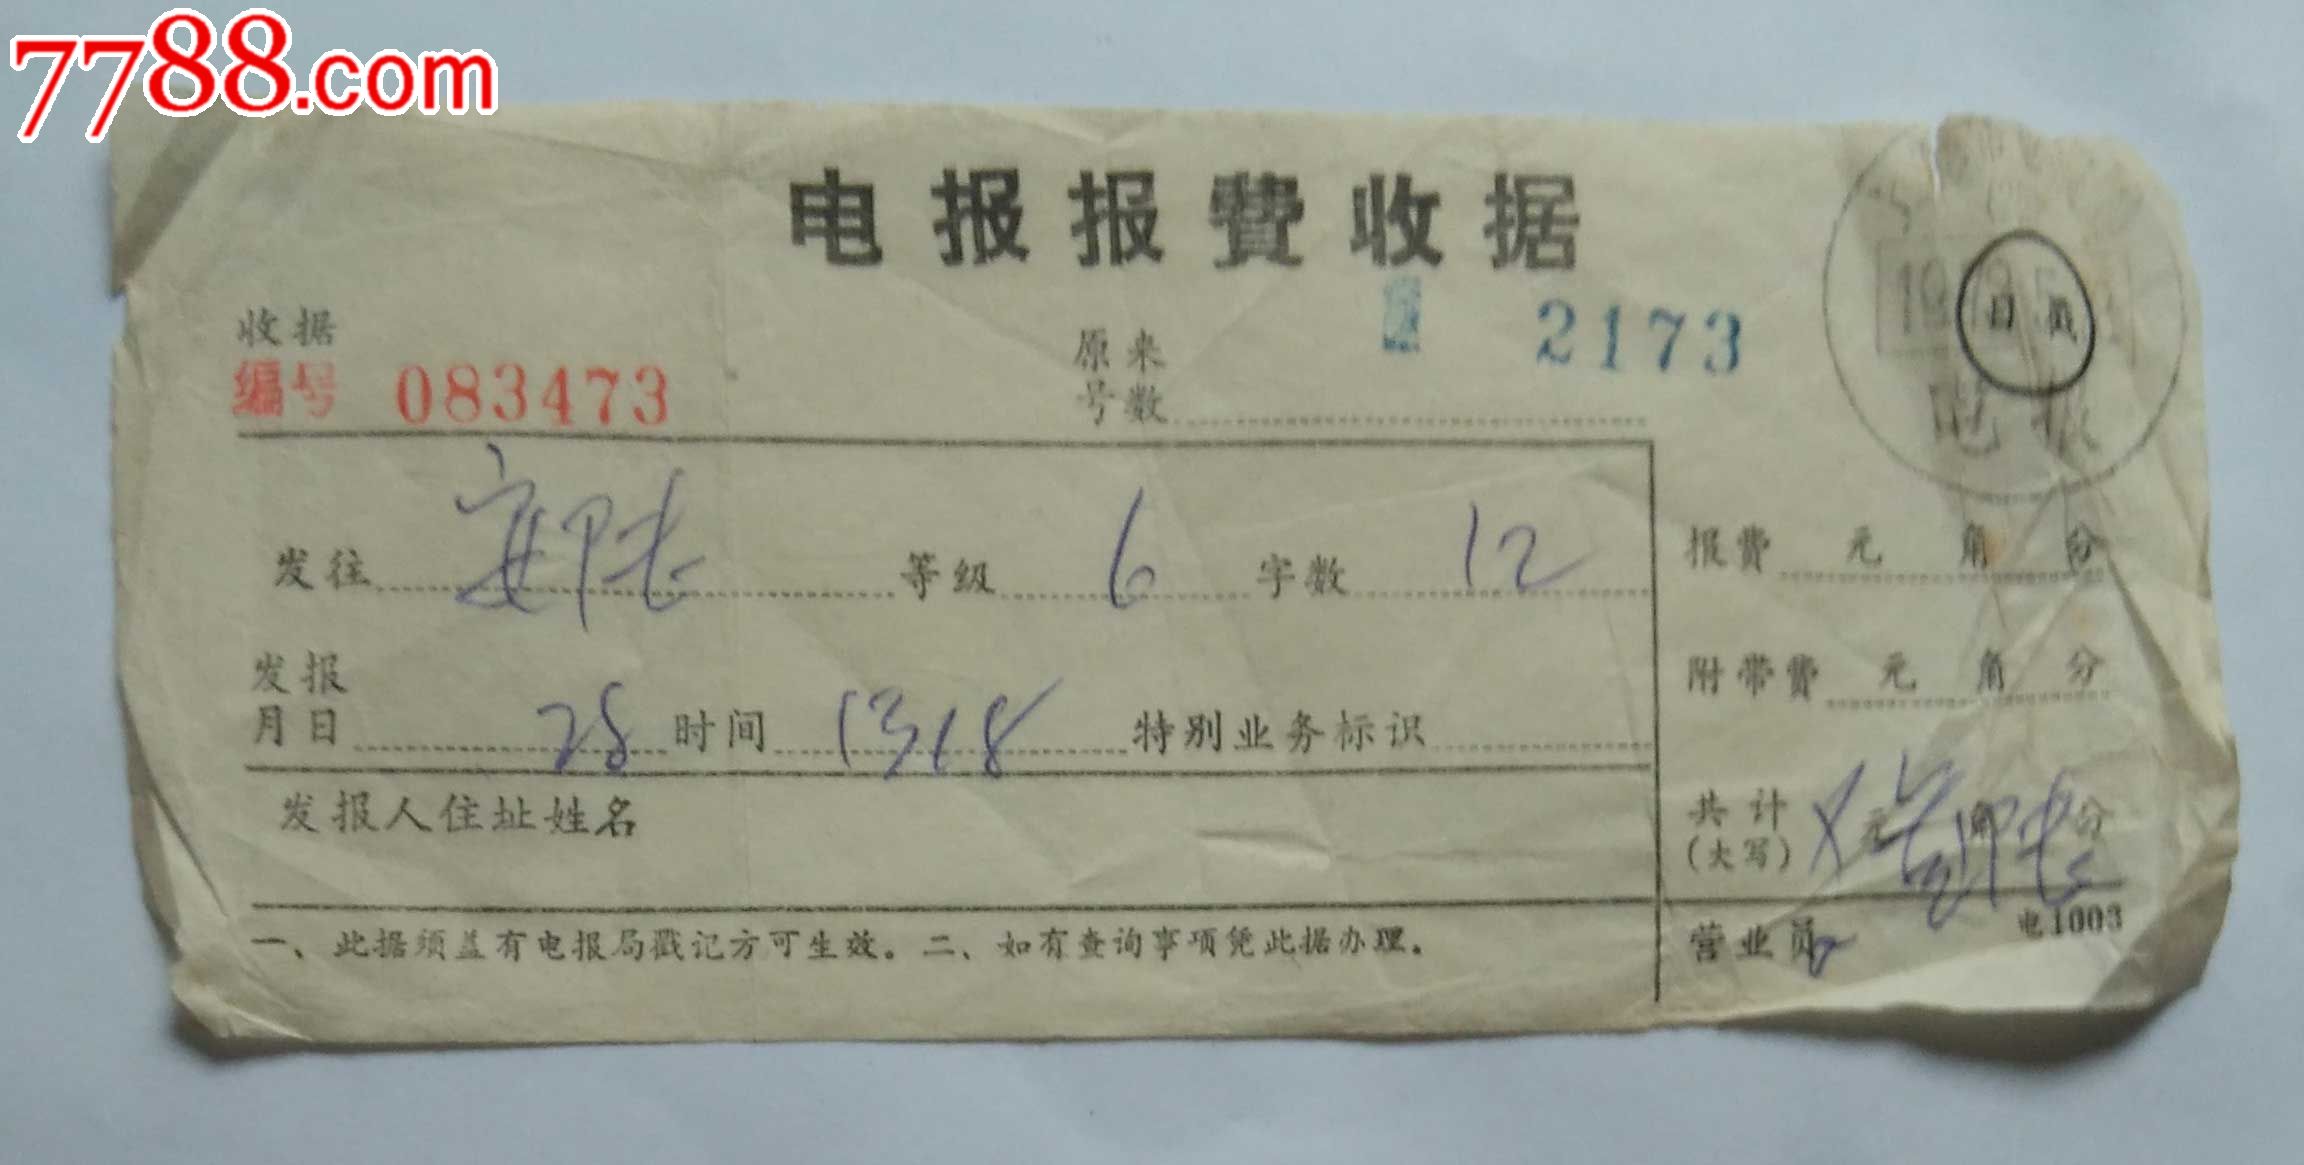 7788.com
电报报費收据
收据
编号 083473
原来
号数 2173
日戳
电报
发往 安陆 等级 6 字数 12
报费 元 角 分
发报
月日 28 时间 1318 特别业务标识
附带费 元 角 分
发报人住址姓名
共计
(大写) 元 角 分
一、此据须盖有电报局戳记方可生效。二、如有查询事项凭此据办理。
营业员
电1003